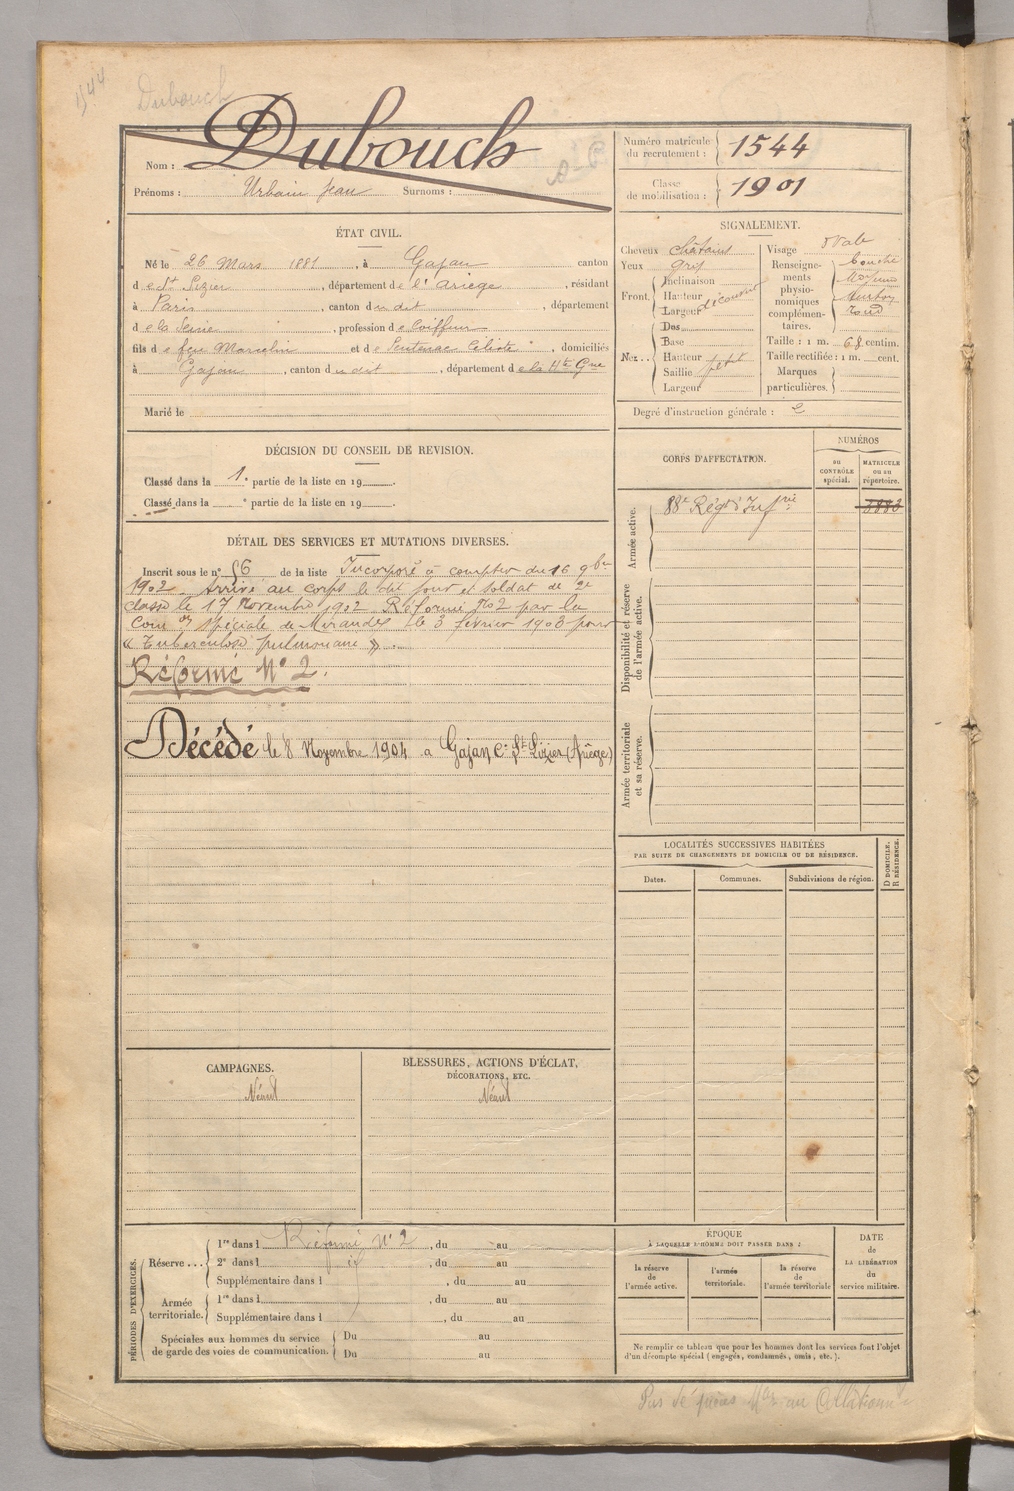 1544
Dubouch
Nom : Dubouch
Prénoms : Urbain Jean Surnoms :
Numéro matricule du recrutement : 1544
Classe de mobilisation : 1901
ÉTAT CIVIL.
Né le 26 Mars 1881, à Gajan canton
d e St Lizier, département d e l'Ariège, résidant
à Paris, canton d u dit, département
d e la Seine, profession d e Coiffeur
fils d e feu Marcelin et d e Sentenac Céleste, domiciliés
à Gajan, canton d u dit, département d e la Hte Gne
Marié le
SIGNALEMENT.
Cheveux châtains
Yeux gris
Front. Inclinaison
Hauteur découvert
Largeur
Nez... Dos
Base
Hauteur
Saillie petit
Largeur
Visage ovale
Renseignements physionomiques complémentaires. bouche
moyenne
menton
rond
Taille : 1 m. 68 centim.
Taille rectifiée : 1 m. cent.
Marques particulières.
Degré d'instruction générale : 2
DÉCISION DU CONSEIL DE REVISION.
Classé dans la 1e partie de la liste en 19 .
Classé dans la e partie de la liste en 19 .
CORPS D'AFFECTATION.
NUMÉROS
au CONTRÔLE spécial.
MATRICULE ou au répertoire.
Armée active.
88e Régt d'Infrie
Disponibilité et réserve de l'armée active.
Armée territoriale et sa réserve.
DÉTAIL DES SERVICES ET MUTATIONS DIVERSES.
Inscrit sous le n° 56 de la liste Incorporé à compter du 16 9bre
1902. Arrivé au corps le dit jour et soldat de 2e
classe le 17 Novembre 1902. Réformé No 2 par la
Comon spéciale de Mirande le 3 février 1903 pour
« Tuberculose pulmonaire ».
Réformé N° 2.
Décédé le 8 Novembre 1904 à Gajan Con St Lizier (Ariège)
LOCALITÉS SUCCESSIVES HABITÉES
PAR SUITE DE CHANGEMENTS DE DOMICILE OU DE RÉSIDENCE.
Dates.
Communes.
Subdivisions de région.
D DOMICILE.
R RÉSIDENCE.
CAMPAGNES.
Néant
BLESSURES, ACTIONS D'ÉCLAT,
DÉCORATIONS, ETC.
Néant
PÉRIODES D'EXERCICES.
Réserve... 1re dans l Réformé N° 2, du au
2e dans l , du au
Supplémentaire dans l , du au
Armée territoriale. 1re dans l , du au
Supplémentaire dans l , du au
Spéciales aux hommes du service de garde des voies de communication. Du au
Du au
ÉPOQUE
À LAQUELLE L'HOMME DOIT PASSER DANS :
la réserve de l'armée active.
l'armée territoriale.
la réserve de l'armée territoriale
DATE de LA LIBÉRATION du service militaire.
Ne remplir ce tableau que pour les hommes dont les services font l'objet
d'un décompte spécial (engagés, condamnés, omis, etc.).